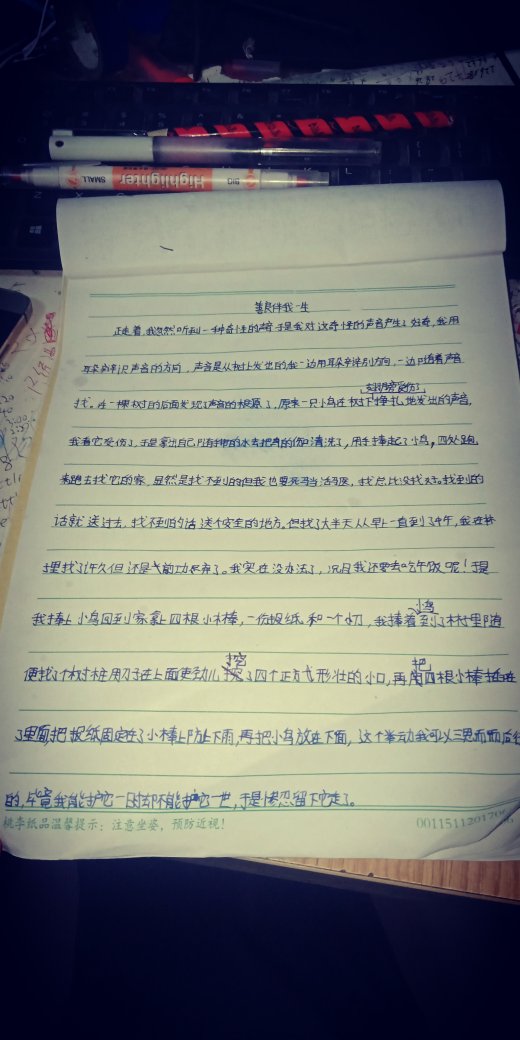 Highlighter
SMALL
BIG
善良伴我一生
正走着,我忽然听到一种奇怪的声音于是我对这奇怪的声音产生了好奇,我用
耳朵辛识声音的方向,声音是从树上发出的我一边用耳朵辛别方向,一边随着声音
找。在一棵树的后面发现了声音的根源了,原来一只小鸟在树下挣扎地发出的声音,
我看它受伤了,于是拿出自己的水去把鸟的伤口清洗了,用手捧起了小鸟,四处跑
来跑去找它的家,显然是找不到的但我也要死马当活马医,找总比没找好。找到的
话就送过去,找不到的话送个安全的地方。但找了大半天从早上一直到了中午,我在林
里找了许久但还是前功尽弃了。我实在没办法了,况且我还要去吃午饭呢!于是
我捧上小鸟回到家拿上四根小木棒,一份报纸和一个刀,我捧着小鸟到了木村里随
便找了个树桩用刀子在上面使劲儿挖了四个正方式形壮的小口,再把四根小棒插在
了里面把报纸固定在了小棒上防止下雨,再把小鸟放在下面,这个举动我可以三思而后行
的,毕竟我能护它一时却不能护它一世,于是留下它走了。
桃李纸品温馨提示:注意坐姿,预防近视!